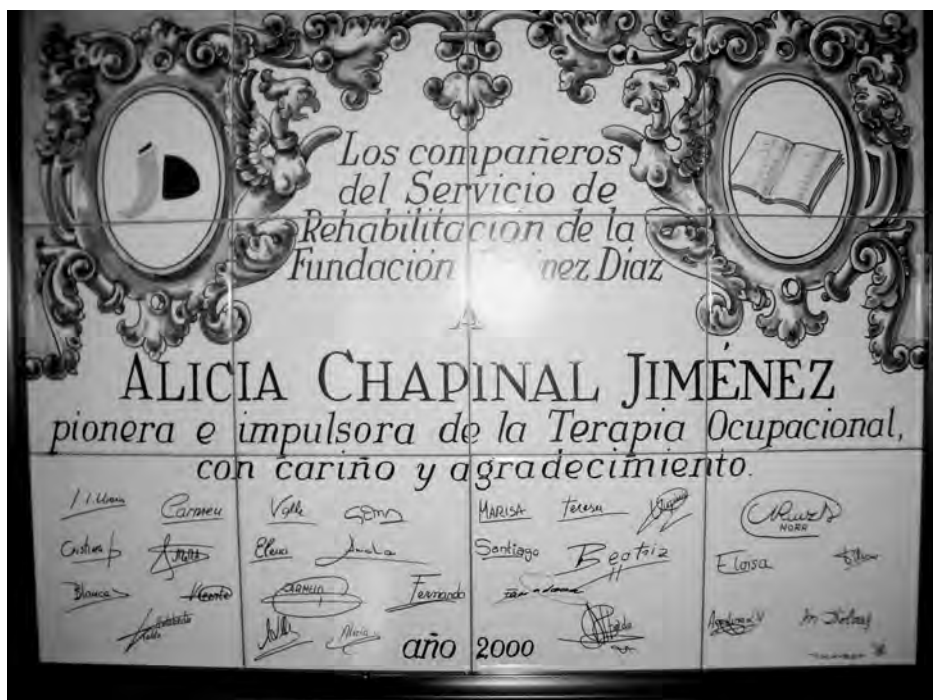 Los compañeros
del Servicio de
Rehabilitación de la
Fundación nez Díaz
A
ALICIA CHAPINAL JIMÉNEZ
pionera e impulsora de la Terapia Ocupacional,
con cariño y agradecimiento.
Carmen Valle GEMA MARISA Teresa
NORA
Cristina Elena Santiago Beatriz Eloisa
Blanca Vicente CARMEN Fernando
Alicia
año 2000